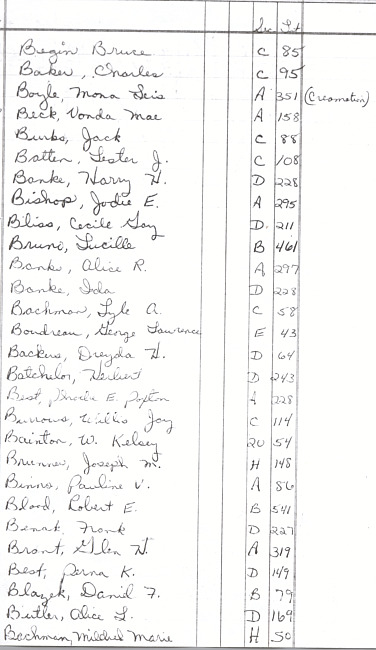 Sec Lot
Begin Bruce C 85
Baker, Charles C 95
Boyle, Mona Lois A 351 (Cremation)
Beck, Vonda Mae A 158
Burbs, Jack C 88
Batten, Lester J. C 108
Banke, Harry H. D 228
Bishop, Jodie E. A 295
Bliss, Cecile Gay D. 211
Bruno, Lucille B 461
Banke, Alice R. A 297
Banke, Ida D 228
Bachman, Lyle A. C 58
Boudreau, George Lawrence E 43
Backus, Dreyda H. D 64
Batchelor, Herbert D 243
Best, E. Paxton A 228
Burrows, Willis Jay C 114
Bainton, W. Kelsey 20 54
Brunner, Joseph M. H 148
Binns, Pauline V. A 86
Blood, Robert E. B 541
Benak, Frank D 227
Bront, Glen H. A 319
Best, Perna K. D 149
Blazek, Daniel F. B 79
Butler, Alice L. D 169
Bachman, Mildred Marie H 50